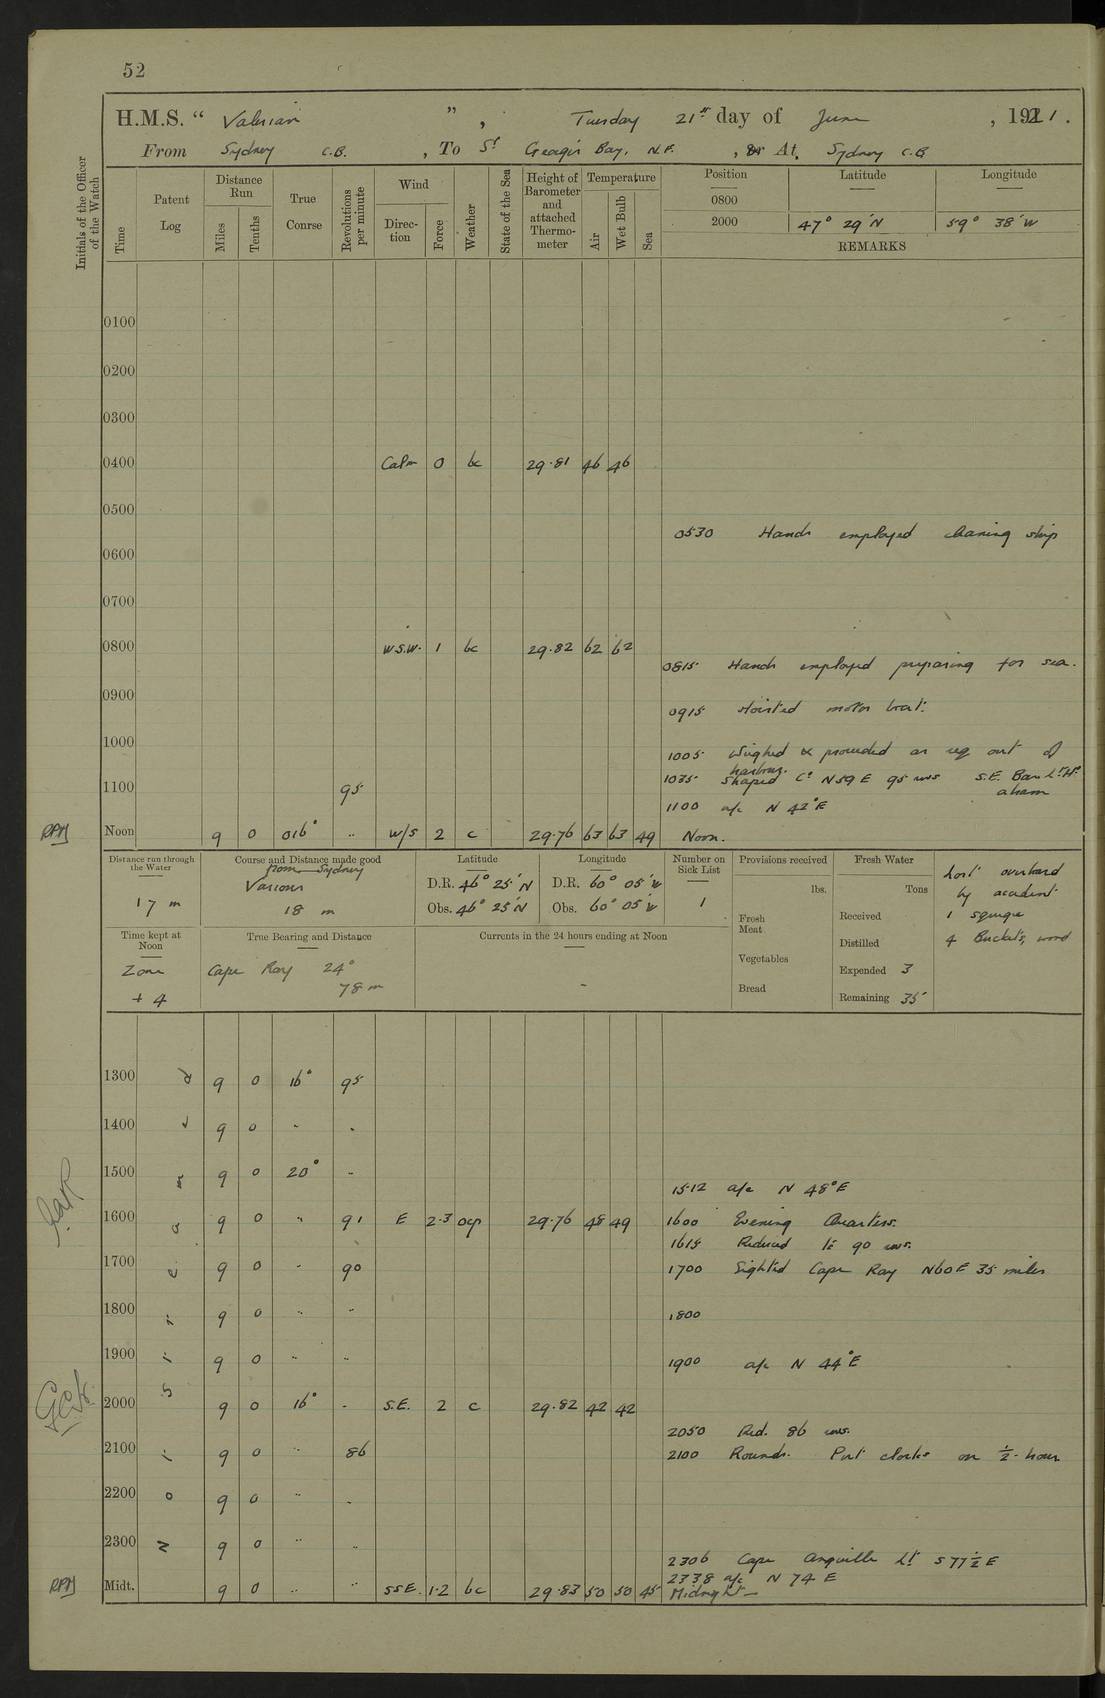 52
H.M.S. “ Valerian ” , Tuesday 21st day of June , 1921.
From Sydney C.B. , To St Georges Bay, N.F. , or At Sydney C.B
Initials of the Officer of the Watch
Time
Patent Log
Distance Run
Miles
Tenths
True Course
Revolutions per minute
Wind
Direction
Force
Weather
State of the Sea
Height of Barometer and attached Thermometer
Temperature
Air
Wet Bulb
Sea
Position Latitude Longitude
0800
2000 47° 29' N 59° 38' W
REMARKS
0100
0200
0300
0400 Calm 0 bc 29.81 46 46
0500
0530 Hands employed cleaning ship
0600
0700
0800 W.S.W. 1 bc 29.82 62 62
0815 Hands employed preparing for sea.
0900
0915 Hoisted motor boat.
1000
1005 Weighed & proceeded as req out of harbour.
1035 Shaped Co N 59 E 95 revs S.E. Bar Lt. Ho abeam
1100 95
1100 a/c N 42° E
RPM Noon 9 0 016° " W/S 2 c 29.76 63 63 49 Noon.
Distance run through the Water
17 m
Course and Distance made good
from Sydney
Various
18 m
Latitude
D.R. 46° 25' N
Obs. 46° 25' N
Longitude
D.R. 60° 05' W
Obs. 60° 05' W
Number on Sick List
1
Provisions received
lbs.
Fresh Meat
Vegetables
Bread
Fresh Water
Tons
Received
Distilled
Expended 3
Remaining 35
Lost overboard
by accident
1 squeegee
4 Buckets, wood
Time kept at Noon
Zone
+ 4
True Bearing and Distance
Cape Ray 24°
78 m
Currents in the 24 hours ending at Noon
-
1300 9 0 16° 95
1400 9 0 " "
1500 9 0 20° "
1512 a/c N 48° E
1600 9 0 " 91 E 2.3 ocp 29.76 48 49 1600 Evening Quarters.
1615 Reduced to 90 revs.
1700 9 0 " 90 1700 Sighted Cape Ray N60E 35 miles
1800 9 0 " " 1800
1900 9 0 " " 1900 a/c N 44° E
2000 9 0 16° " S.E. 2 c 29.82 42 42
2050 Red. 86 revs.
2100 9 0 " 86 2100 Rounds. Put clocks on ½ hour
2200 9 0 " "
2300 9 0 " "
2306 Cape Anguille Lt S 77½ E
2338 a/c N 74 E
RPM Midt. 9 0 " " SSE. 1.2 bc 29.83 50 50 45 Midnight
Not Streamed